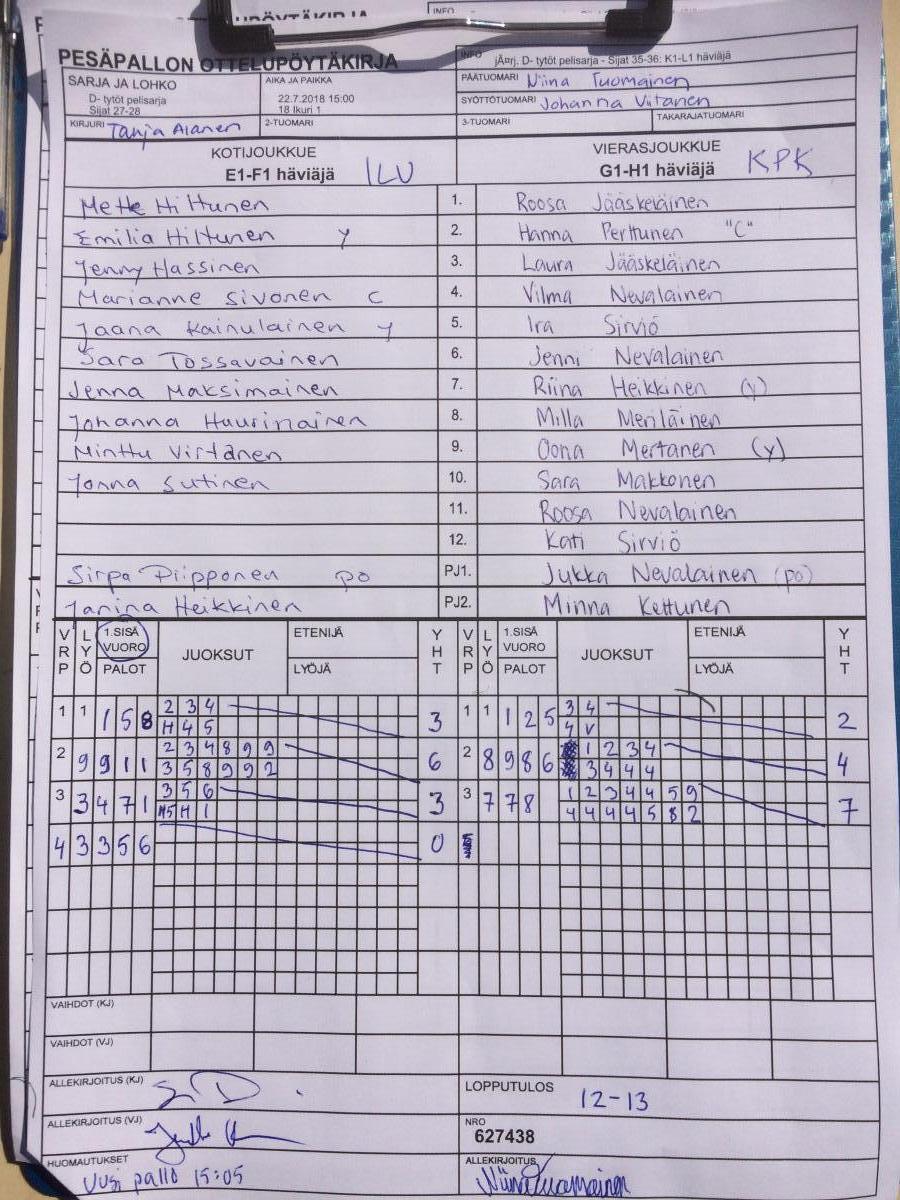 PESÄPALLON OTTELUPÖYTÄKIRJA
INFO
jÃ¤rj. D- tytöt pelisarja - Sijat 35-36: K1-L1 häviäjä
SARJA JA LOHKO
D- tytöt pelisarja
Sijat 27-28
AIKA JA PAIKKA
22.7.2018 15:00
18 Ikuri 1
PÄÄTUOMARI Niina Tuomainen
SYÖTTÖTUOMARI Johanna Viitanen
KIRJURI Tanja Alanen
2-TUOMARI
3-TUOMARI
TAKARAJATUOMARI
KOTIJOUKKUE
E1-F1 häviäjä ILU
VIERASJOUKKUE
G1-H1 häviäjä KPK
Mette Hiltunen 1. Roosa Jääskeläinen
Emilia Hiltunen y 2. Hanna Perttunen "C"
Jenny Hassinen 3. Laura Jääskeläinen
Marianne Sivonen C 4. Vilma Nevalainen
Jaana Kainulainen y 5. Ira Sirviö
Sara Tossavainen 6. Jenni Nevalainen
Jenna Maksimainen 7. Riina Heikkinen (y)
Johanna Huurinainen 8. Milla Meriläinen
Minttu Virtanen 9. Oona Mertanen (y)
Jonna Sutinen 10. Sara Makkonen
11. Roosa Nevalainen
12. Kati Sirviö
Sirpa Piipponen po PJ1. Jukka Nevalainen (po)
Janina Heikkinen PJ2. Minna Kettunen
VRP LYÖ 1.SISÄ VUORO PALOT JUOKSUT ETENIJÄ LYÖJÄ YHT VRP LYÖ 1.SISÄ VUORO PALOT JUOKSUT ETENIJÄ LYÖJÄ YHT
1 1 1 5 8 2 3 4 3 1 1 1 2 5 3 4 2
H 4 5 4 V
2 9 9 1 1 2 3 4 8 9 9 6 2 8 9 8 6 1 2 3 4 4
3 5 8 9 9 2 3 4 4 4
3 3 4 7 1 3 5 6 3 3 7 7 8 1 2 3 4 4 5 9 7
H 1 4 4 4 4 5 8 2
4 3 3 5 6 0
VAIHDOT (KJ)
VAIHDOT (VJ)
ALLEKIRJOITUS (KJ)
LOPPUTULOS
12-13
ALLEKIRJOITUS (VJ)
NRO
627438
HUOMAUTUKSET
Uusi pallo 15:05
ALLEKIRJOITUS
Niina Tuomainen